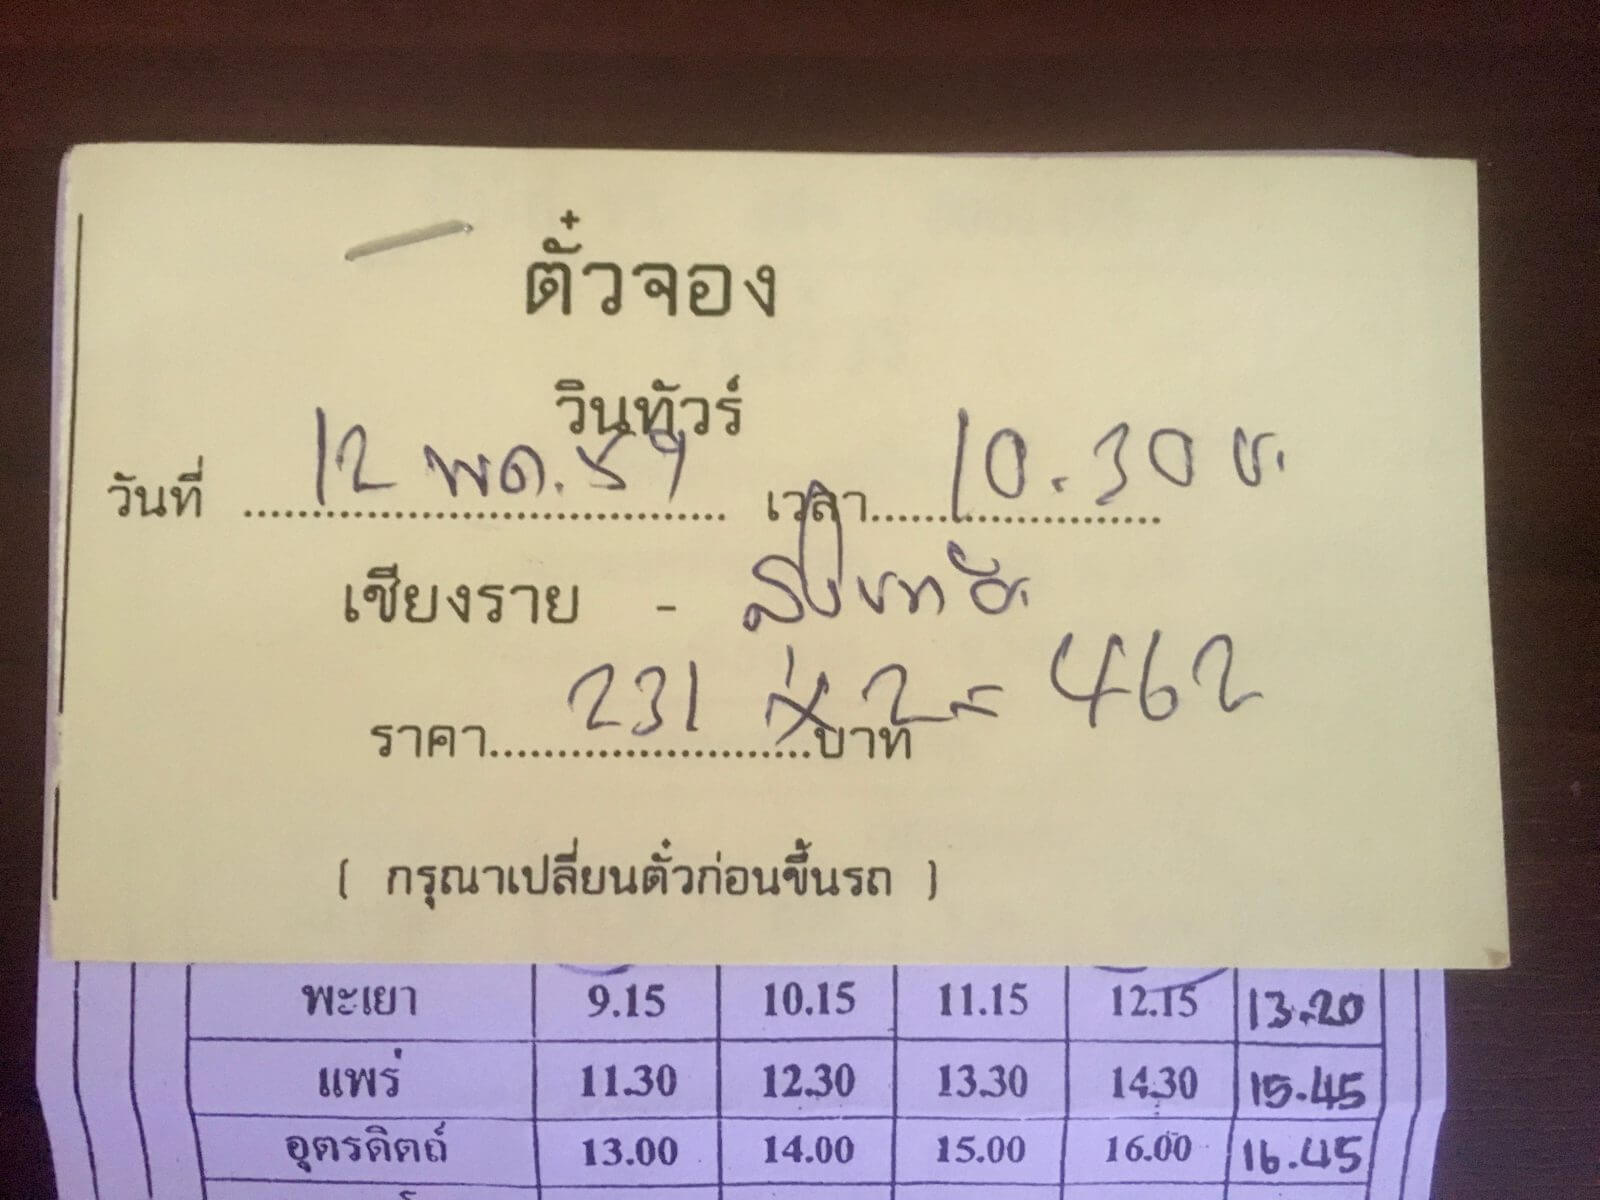 ตั๋วจอง
วินทัวร์
วันที่ ........ 12 พด. 59 ........ เวลา ........ 10.30 น.
เชียงราย - สุโขทัย
ราคา ........ 231 x 2 = 462 ........ บาท
( กรุณาเปลี่ยนตั๋วก่อนขึ้นรถ )
พะเยา 9.15 10.15 11.15 12.15 13.20
แพร่ 11.30 12.30 13.30 14.30 15.45
อุตรดิตถ์ 13.00 14.00 15.00 16.00 16.45